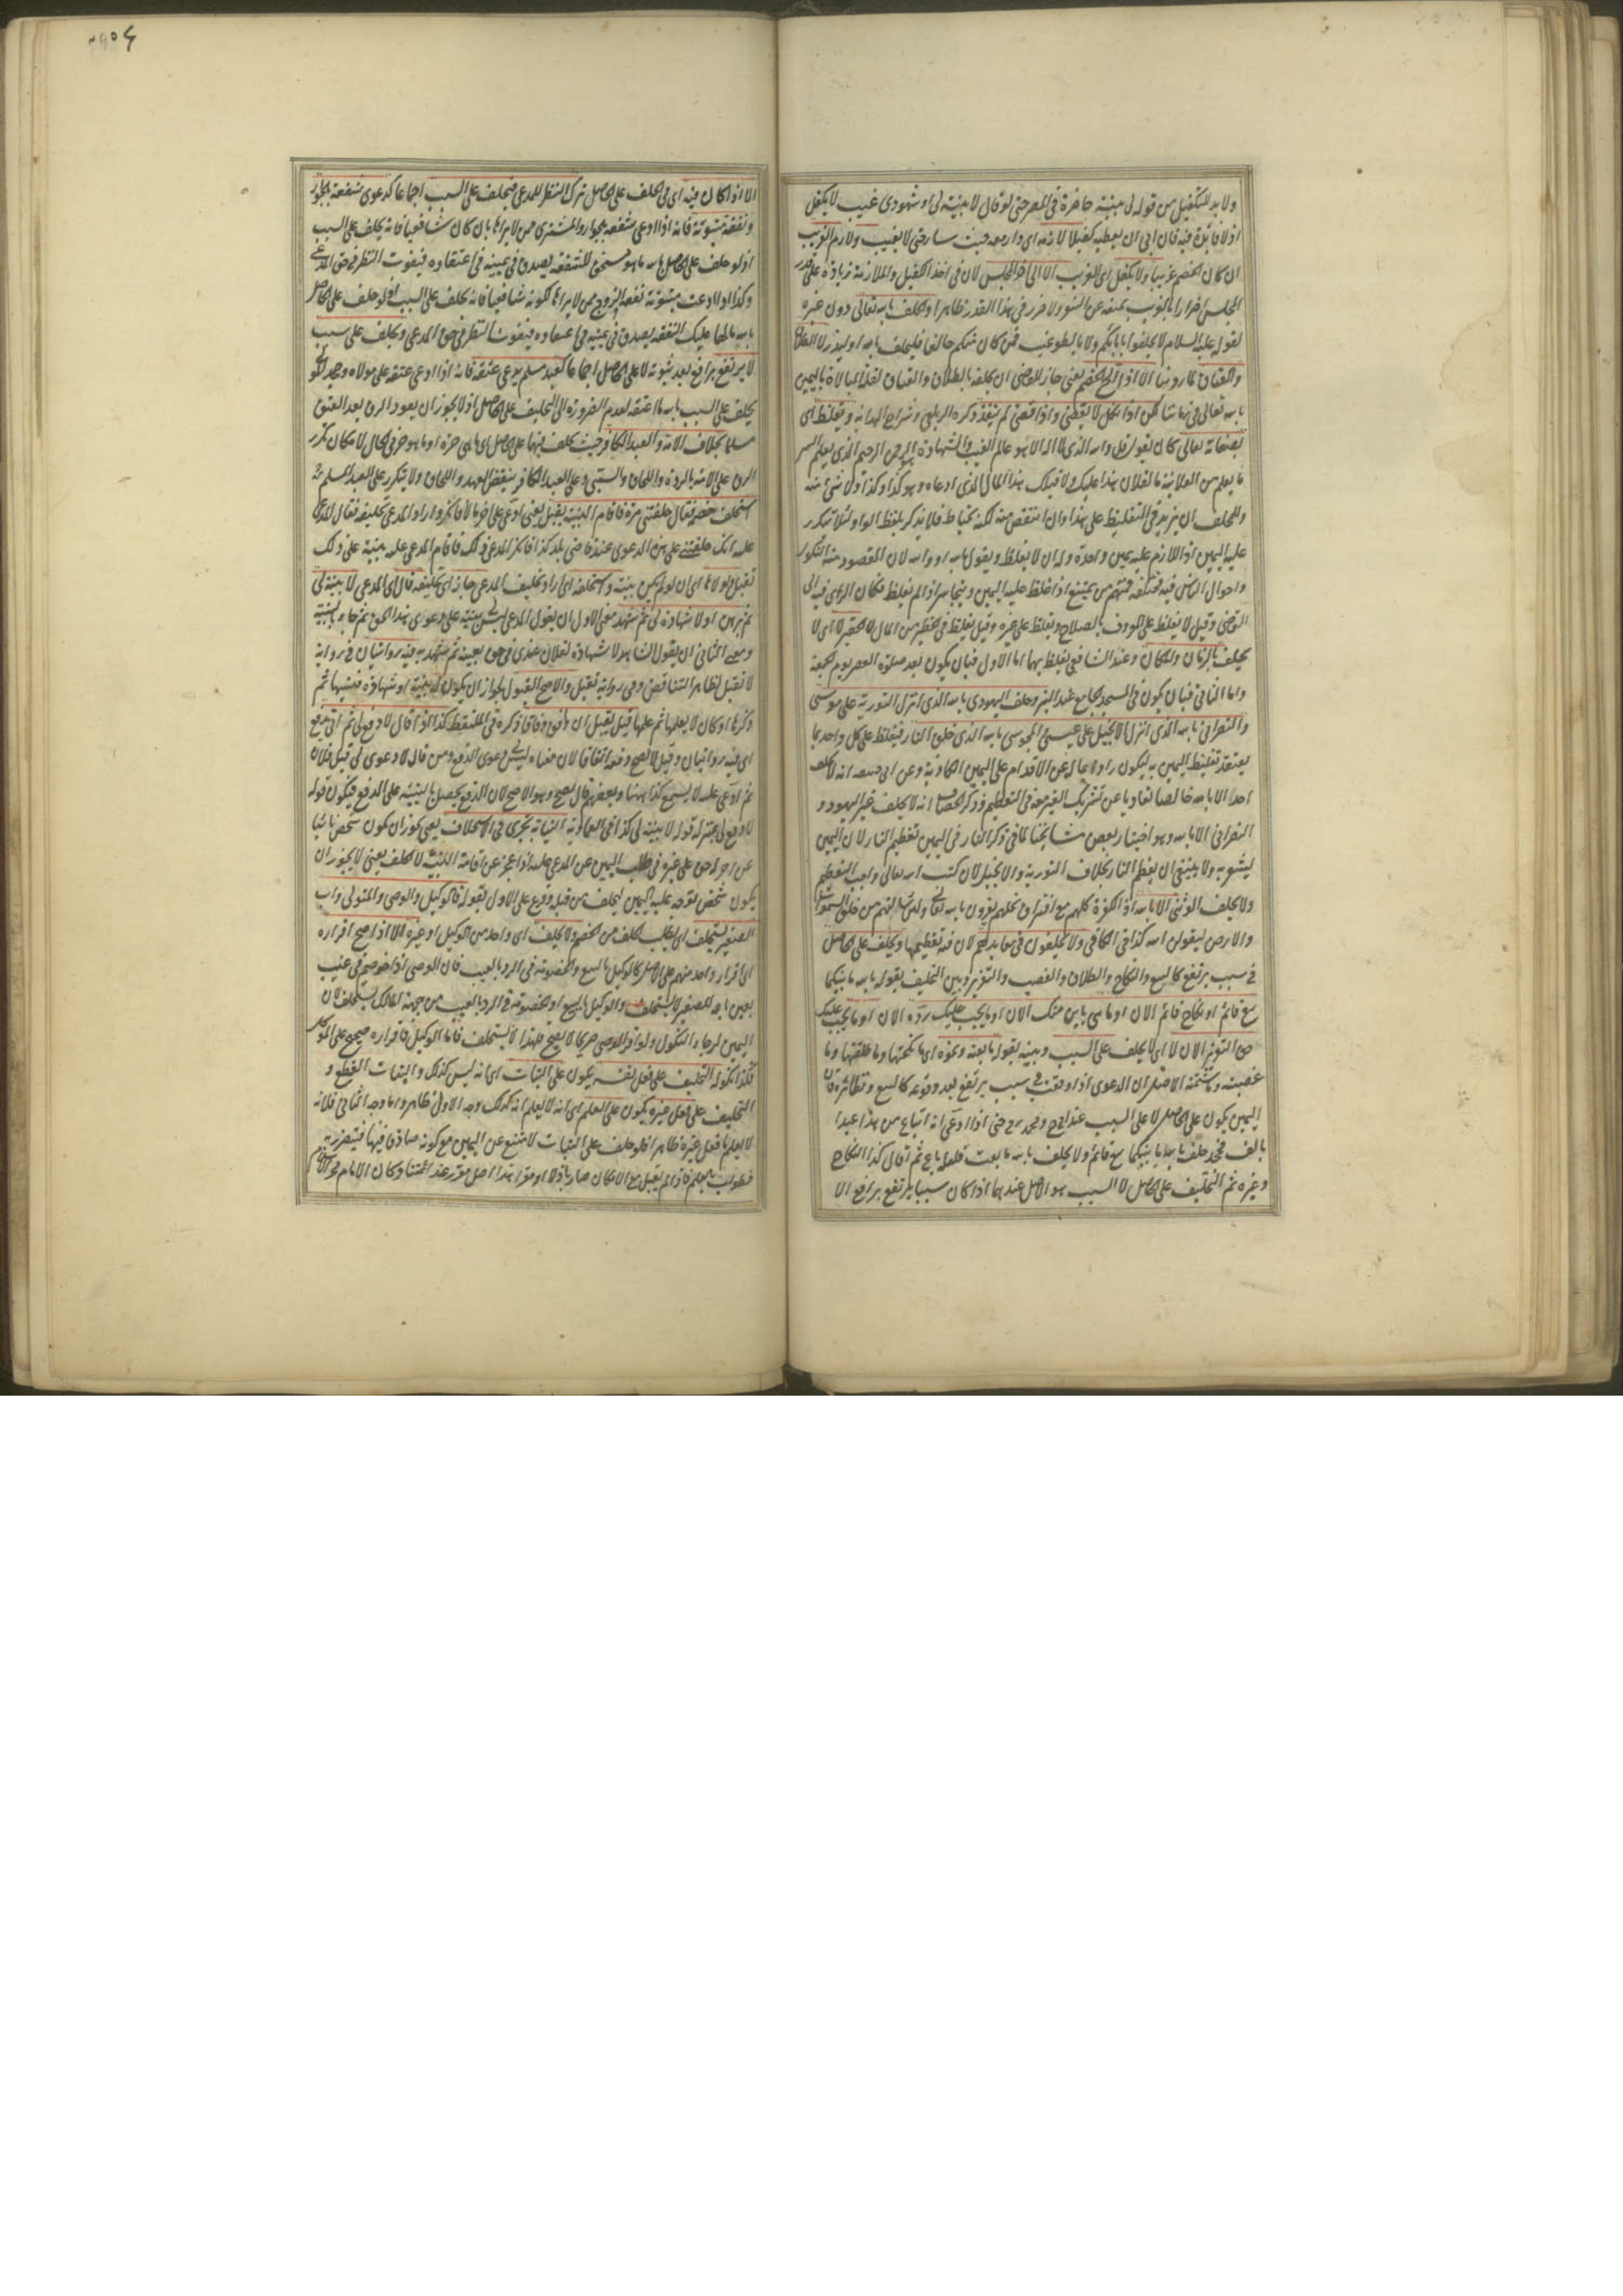 ولا بد للتكفيل من قوله لي بينة حاضرة في المصر حتى لو قال لا بينة لي او شهودي غيب لا يكفل
اذ لا فائدة فيه فان ابى ان يعطيه كفيلا لازمه اي دار معه حيث سار حتى لا يغيب ولازم الغريب
ان كان الخصم غريبا ولا يكفل اي الغريب الا الى آخر المجلس لان في اخذ الكفيل والملازمة زيادة على قدر
المجلس اضرارا بالغريب بمنعه عن السفر ولا ضرر في هذا القدر ظاهرا والحلف بالله تعالى دون غيره
لقوله عليه السلام لا تحلفوا بابائكم ولا بالطواغيت فمن كان منكم حالفا فليحلف بالله او ليذر لا الطلاق
والعتاق لما روينا الا اذا الح الخصم يعني جاز للقاضي ان يحلفه بالطلاق والعتاق لقلة المبالاة باليمين
بالله تعالى في زماننا لكن اذا نكل لا يقضي واذا قضى لم ينفذ ذكره الزيلعي وشراح الهداية وتغلظ اي
بصفاته تعالى كان يقول قل والله الذي لا اله الا هو عالم الغيب والشهادة هو الرحمن الرحيم الذي يعلم السر
ما يعلم من العلانية ما لفلان هذا عليك ولا قبلك هذا المال الذي ادعاه وهو كذا وكذا ولا شئ منه
وللمحلف ان يزيد في التغليظ على هذا وان ينقص منه لكنه يحتاط فلا يذكر بلفظ الواو لئلا تتكرر
عليه اليمين اذ اللازم عليه يمين واحدة وله ان لا يغلظ ويقول بالله او والله لان المقصود منه النكول
واحوال الناس فيه مختلفة فمنهم من يمتنع اذا غلظ عليه اليمين ويتجاسر اذا لم يغلظ فكان الراي فيه الى
القاضي وقيل لا يغلظ على المعروف بالصلاح ويغلظ على غيره وقيل يغلظ في الخطير من المال لا الحقير لا اي لا
يحلف بالزمان والمكان وعند الشافعي يغلظ بهما اما الاول فبان يكون بعد صلوة العصر يوم الجمعة
واما الثاني فبان يكون في المسجد الجامع عند المنبر وحلف اليهودي بالله الذي انزل التورية على موسى
والنصراني بالله الذي انزل الانجيل على عيسى والمجوسي بالله الذي خلق النار فيغلظ على كل واحد بما
يعتقد تغليظ اليمين به ليكون رادعا له عن الاقدام على اليمين الكاذبة وعن ابي حنيفة انه لا يحلف
احدا الا بالله خالصا تفاديا عن تشريك الغير معه في التعظيم وذكر الخصاف انه لا يحلف غير اليهود و
النصراني الا بالله وهو اختيار بعض مشايخنا لما في ذكر النار في اليمين تعظيم النار لان اليمين
يشعر به ولا ينبغي ان يعظم النار بخلاف التورية والانجيل لان كتب الله تعالى واجب التعظيم
ولا يحلف الوثني الا بالله اذ الكفرة كلهم مع افتراق نحلهم يقرون بالله تعالى ولئن سالتهم من خلق السموات
والارض ليقولن الله كذا في الكافي ولا يحلفون في معابدهم لان فيه تعظيمها ويحلف على الحاصل
في سبب يرتفع كالبيع والنكاح والطلاق والغصب والتعزير وبين التحليف بقوله بالله ما بينكما
بيع قائم او نكاح قائم الان او ما هي باين منك الان او ما يجب عليك رده الان او ما يجب عليك
حق التعزير الان لا اي لا يحلف على السبب وبينه بقوله ما بعته ونحوه اي ما نكحتها وما طلقتها وما
غصبته وما شتمته الاصل ان الدعوى اذا وقعت في سبب يرتفع بعد وقوعه كالبيع ونظائره فان
اليمين يكون على الحاصل لا على السبب عند ابي ح ومحمد رح حتى اذا ادعى انه ابتاع من هذا عبدا
بالف فجحد حلف بالله ما بينكما بيع قائم ولا يحلف بالله ما بعت فلعله باع ثم اقال كذا النكاح
وغيره ثم التحليف على الحاصل لا السبب هو الاصل عندهما اذا كان سببا يرتفع برافع الا
الا اذا كان فيه اي في الحلف على الحاصل ترك النظر للمدعي فيحلف على السبب اجماعا كدعوى شفعة بالجوار
ونفقة مبتوتة فانه اذا ادعى شفعة بجوار والمشتري ممن لا يراها بان كان شافعيا فانه يحلف على السبب
اذ لو حلف على الحاصل بالله ما هو مستحق للشفعة يصدق في يمينه في اعتقاده فيفوت النظر في حق المدعي
وكذا اذا ادعت مبتوتة نفقة والزوج ممن لا يراها لكونه شافعيا فانه يحلف على السبب اذ لو حلف على الحاصل
بالله ما لها عليك النفقة يصدق في يمينه في اعتقاده فيفوت النظر في حق المدعي ويحلف على سبب
لا يرتفع برافع بعد ثبوته لا على الحاصل اجماعا كعبد مسلم يدعي عتقه فانه اذا ادعى عتقه على مولاه وجحد المولى
يحلف على السبب بالله ما اعتقه لعدم الضرورة الى التحليف على الحاصل اذ لا يجوز ان يعود الرق بعد العتق
مسلما بخلاف الامة والعبد الكافر حيث يحلف فيهما على الحاصل اي ما هي حرة او ما هو حر في الحال لامكان تكرر
الرق على الامة بالردة واللحاق والسبي وعلى العبد الكافر بنقض العهد واللحاق ولا يتكرر على العبد المسلم
استحلف خصمه فقال حلفتني مرة فاقام البينة يقبل يعني ادعى على آخر مالا فانكر واراد المدعي تحليفه فقال المدعى
عليه انك حلفتني على هذه الدعوى عند قاضي بلد كذا فانكر المدعي ذلك فاقام المدعى عليه بينة على ذلك
تقبل ولولاها اي ان لو لم يكن بينة واستحلفه اي اراد تحليف المدعي جاز اي تحليفه قال اي المدعي لا بينة لي
ثم برهن او لا شهادة لي ثم شهد معنى الاول ان يقول المدعي ليس لي بينة على دعوى هذا الحق ثم جاء بالبينة
ومعنى الثاني ان يقول الشاهد لا شهادة لفلان عندي في حق بعينه ثم شهد به فيه روايتان في رواية
لا تقبل لظاهر التناقض وفي رواية تقبل والاصح القبول لجواز ان يكون له بينة او شهادة فنسيها ثم
ذكرها او كان لا يعلمها ثم علمها قيل تقبل ان وفق وفاقا ذكره في الملتقط كذا اذا قال لا دفع لي ثم اتى بدفع
اي فيه روايتان وقيل لا يصح دفعه اتفاقا لان معناه ليس لي دعوى الدفع ومن قال لا دعوى لي قبل فلان
ثم ادعى عليه لا يسمع كذا ههنا وبعضهم قال يصح وهو الاصح لان الدفع يحصل بالبينة على الدفع فيكون قوله
لا دفع لي بمنزلة قوله لا بينة لي كذا في العمادية النيابة تجري في الاستحلاف يعني يجوز ان يكون شخص نائبا
عن آخر له حق على غيره في طلب اليمين عن المدعى عليه اذا عجز عن اقامة البينة لا الحلف يعني لا يجوز ان
يكون شخص توجه عليه اليمين ليحلف من قبله وفرع على الاول بقوله فالوكيل والوصي والمتولي واب
الصغير يستحلف اي يطلب الحلف من الخصم ولا يحلف اي واحد من الوكيل او غيره الا اذا صح اقراره
اي اقرار واحد منهم على الاصل كالوكيل بالبيع والخصومة في الرد بالعيب فان الوصي اذا خوصم في عيب
بعين باعه للصغير لا يستحلف والوكيل بالبيع او الخصومة في الرد بالعيب من جهة المالك يستحلف لان
اليمين لرجاء النكول ولو اقر الوصي صريحا لا يصح فلهذا لا يستحلف فاما الوكيل فاقراره صحيح على الموكل
فكذا نكوله التحليف على فعل نفسه يكون على البتات اي انه ليس كذلك والبتات القطع و
التحليف على فعل غيره يكون على العلم اي انه لا يعلم انه كذلك وجه الاول ظاهر واما وجه الثاني فلانه
لا يعلم ما فعل غيره ظاهرا فلو حلف على البتات لامتنع عن اليمين مع كونه صادقا فيها فيتضرر به
فطولب بالعلم فاذا لم يقبل مع الامكان صار باذلا او مقرا هذا اصل مقرر عند ائمتنا وكان الامام فخر الاسلام